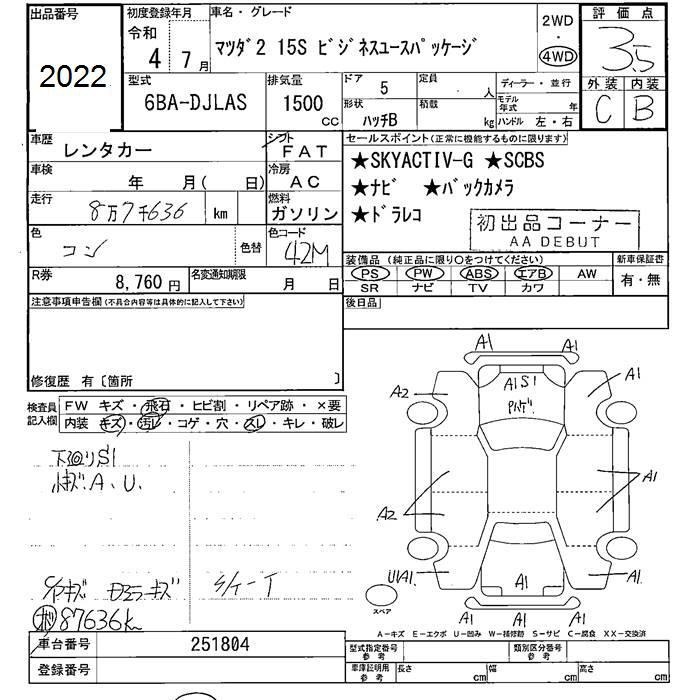 出品番号
2022
初度登録年月
令和
4 7月
車名・グレード
マツダ2 15S ビジネスユースパッケージ
2WD
・
4WD
評価点
3.5
外装 内装
C B
型式
6BA-DJLAS
排気量
1500
cc
ドア
5
定員
人
形状
ハッチB
積載
kg
ディーラー・並行
モデル年式 年
ハンドル 左・右
車歴
レンタカー
シフト
FAT
車検
年 月( 日)
冷房
AC
走行
8万7千636 km
燃料
ガソリン
色
コン
色替
色コード
42M
R券
8,760 円
名変通知期限
月 日
セールスポイント(正常に機能するものに限ります)
★SKYACTIV-G ★SCBS
★ナビ ★バックカメラ
★ドラレコ
初出品コーナー
AA DEBUT
装備品 (純正品に限り○をつけてください)
PS PW ABS エアB AW
SR ナビ TV カワ
新車保証書
有・無
注意事項申告欄(不具合内容等は具体的に記入して下さい)
後日品
修復歴 有〔箇所 〕
検査員記入欄
FW キズ・飛石・ヒビ割・リペア跡・×要
内装 キズ・汚レ・コゲ・穴・スレ・キレ・破レ
下回りS1
小キズA、U、
87636km
A1 A1
A2 A1S1 A1
A2 A1
UA1 A1 A1
A1 A1 A1
スペア
A-キズ E-エクボ U-凹み W-補修跡 S-サビ C-腐食 XX-交換済
車台番号
251804
登録番号
型式指定番号
参考
類別区分番号
参考
車庫証明用
参考
長さ cm
幅 cm
高さ cm